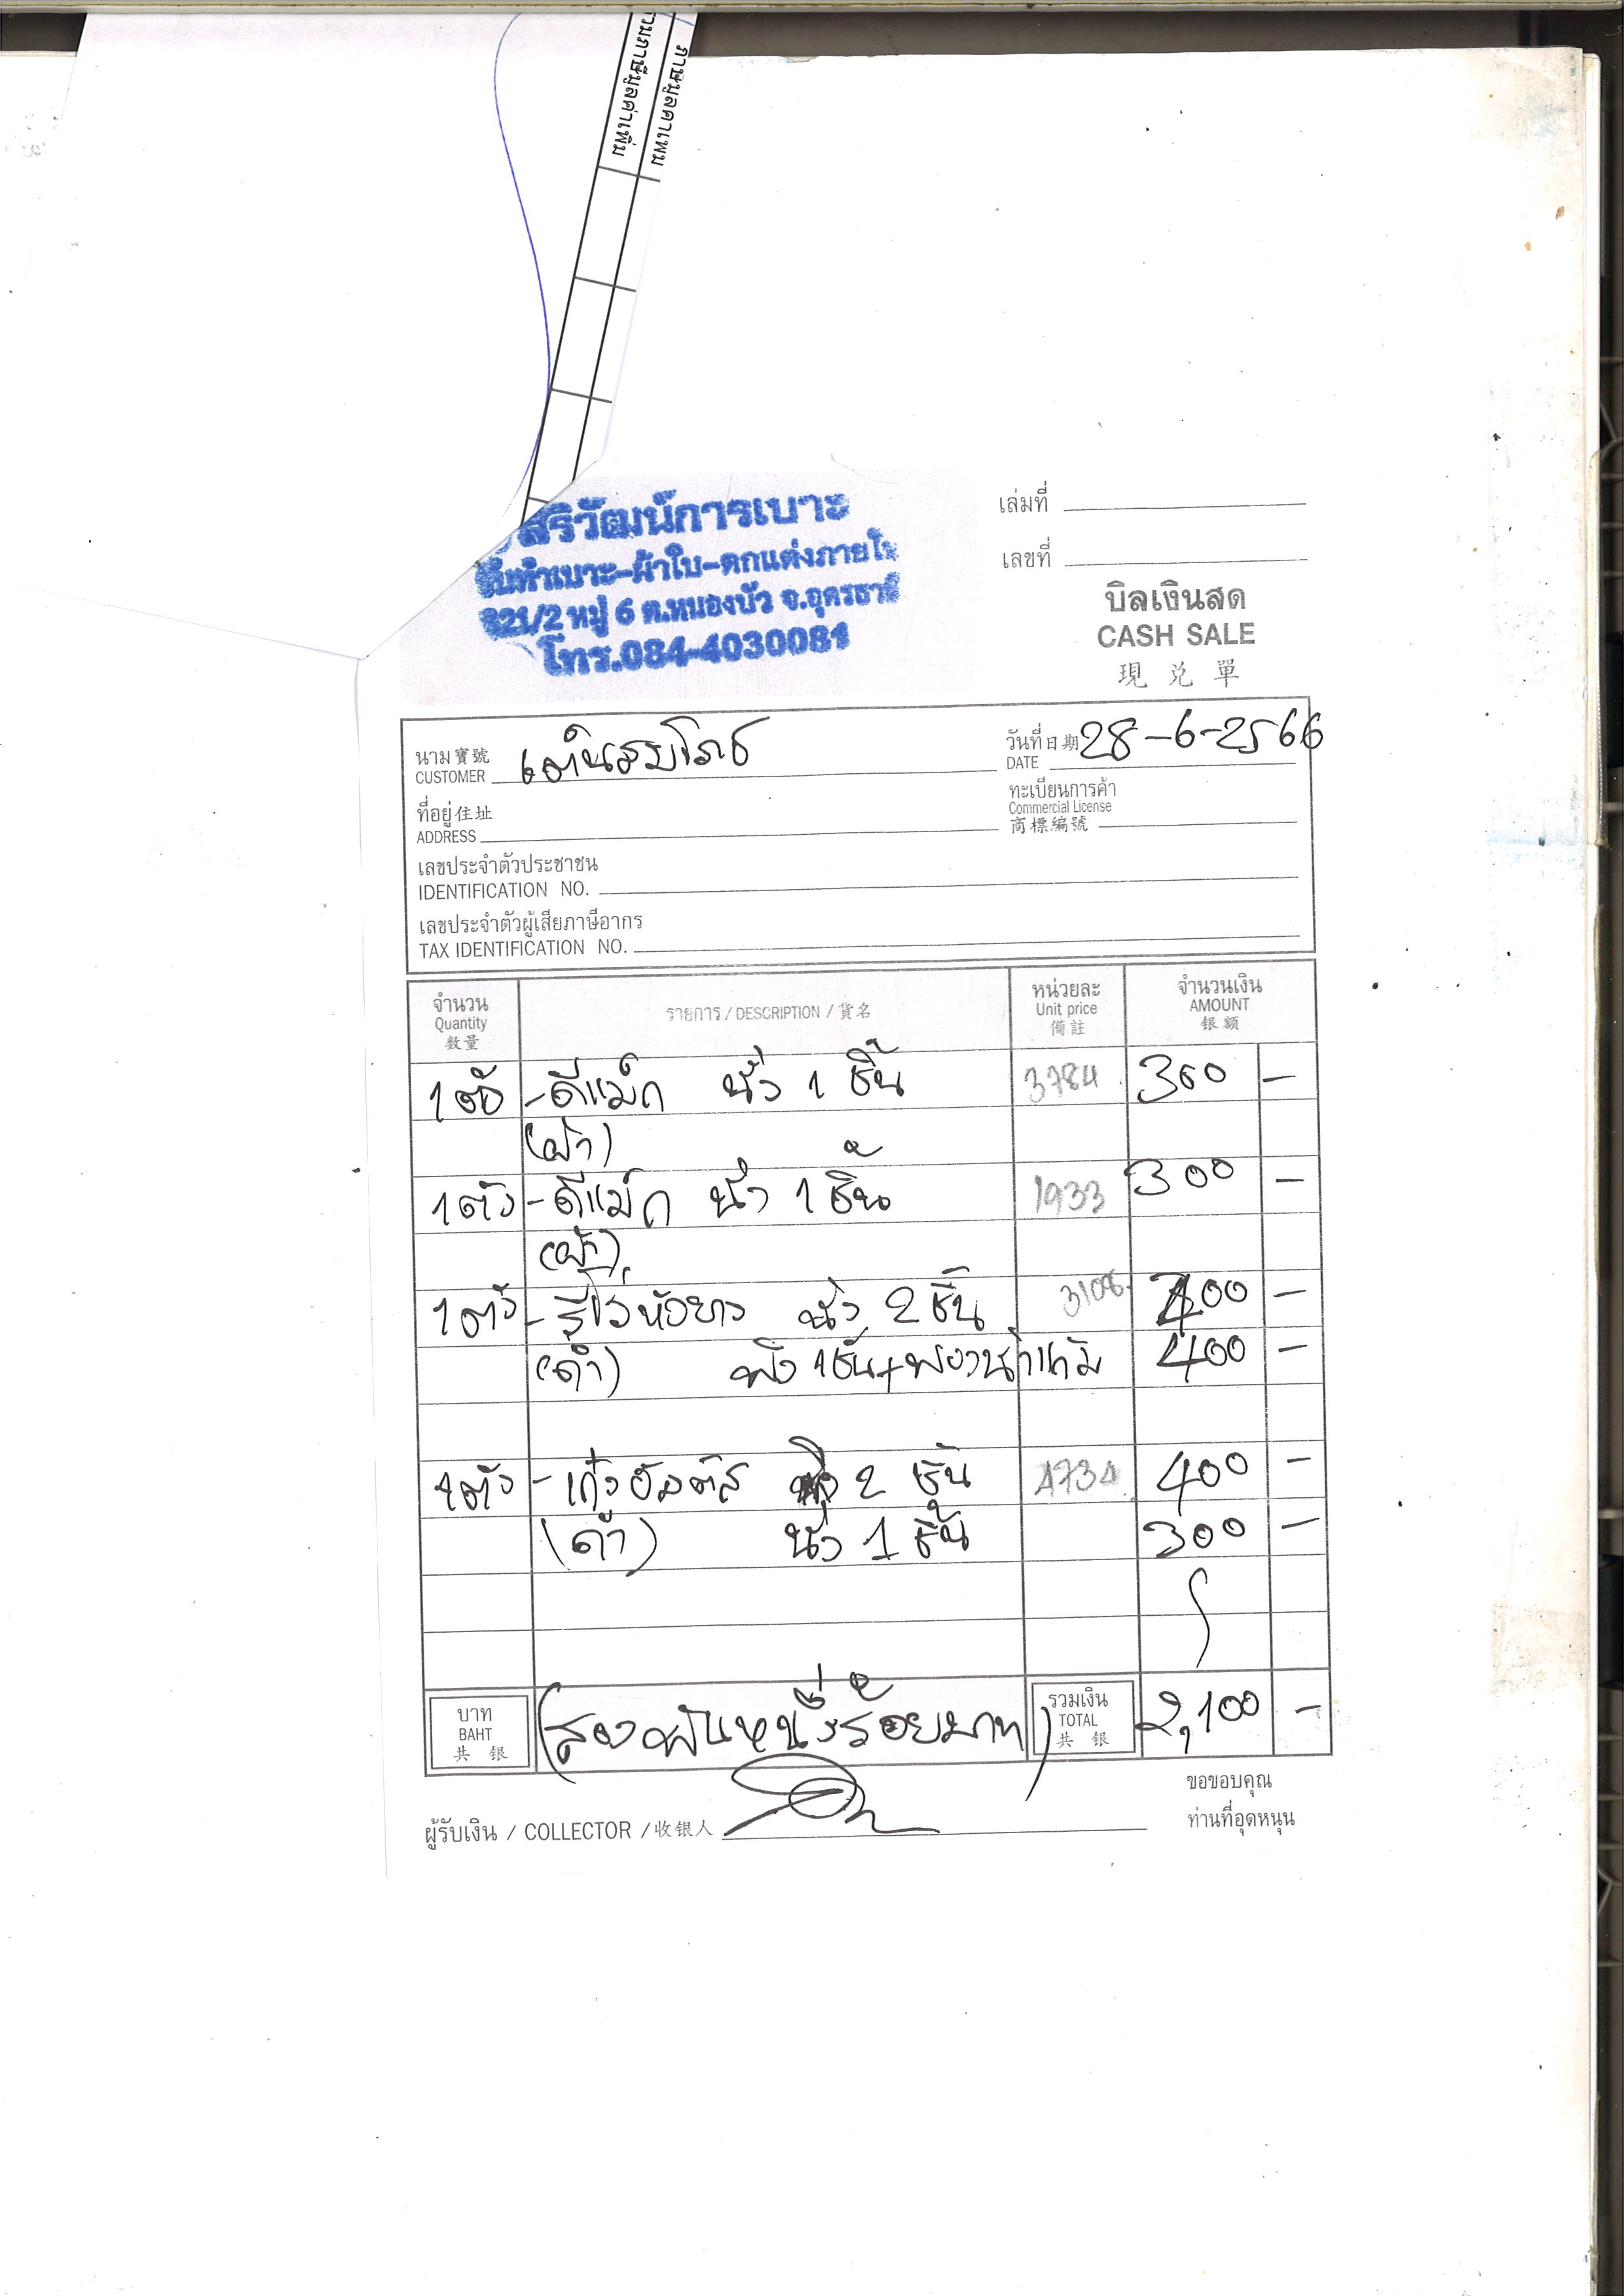 ภาษีมูลค่าเพิ่ม
รวมภาษีมูลค่าเพิ่ม
สิริวัฒน์การเบาะ
รับทำเบาะ-ผ้าใบ-ตกแต่งภายใน
321/2 หมู่ 6 ต.หนองบัว จ.อุดรธานี
โทร.084-4030081
เล่มที่
เลขที่
บิลเงินสด
CASH SALE
現兌單
นาม寶號 CUSTOMER เต็นสมโภช
วันที่日期 DATE 28-6-2566
ที่อยู่住址 ADDRESS
ทะเบียนการค้า Commercial License 商標編號
เลขประจำตัวประชาชน
IDENTIFICATION NO.
เลขประจำตัวผู้เสียภาษีอากร
TAX IDENTIFICATION NO.
จำนวน Quantity 数量 รายการ / DESCRIPTION / 貨名 หน่วยละ Unit price 備註 จำนวนเงิน AMOUNT 银额
1 ตัว -ดีแม็ก นั่ง 1 ชิ้น 3784 300 -
(ผ้า)
1 ตัว -ดีแม็ก นั่ง 1 ชิ้น 1933 300 -
(ผ้า)
1 ตัว - รีโว่หัวยาว นั่ง 2 ชิ้น 3108 400 -
(ดำ) พิง 1 ชิ้น+ฟองน้ำ 400 -
1 ตัว - เก๋งอัลติส 2 ชิ้น 400 -
(ดำ) นั่ง 1 ชิ้น 300 -
บาท BAHT 共银 (สองพันหนึ่งร้อยบาท) รวมเงิน TOTAL 共银 2,100 -
ผู้รับเงิน / COLLECTOR / 收银人
ขอขอบคุณ
ท่านที่อุดหนุน